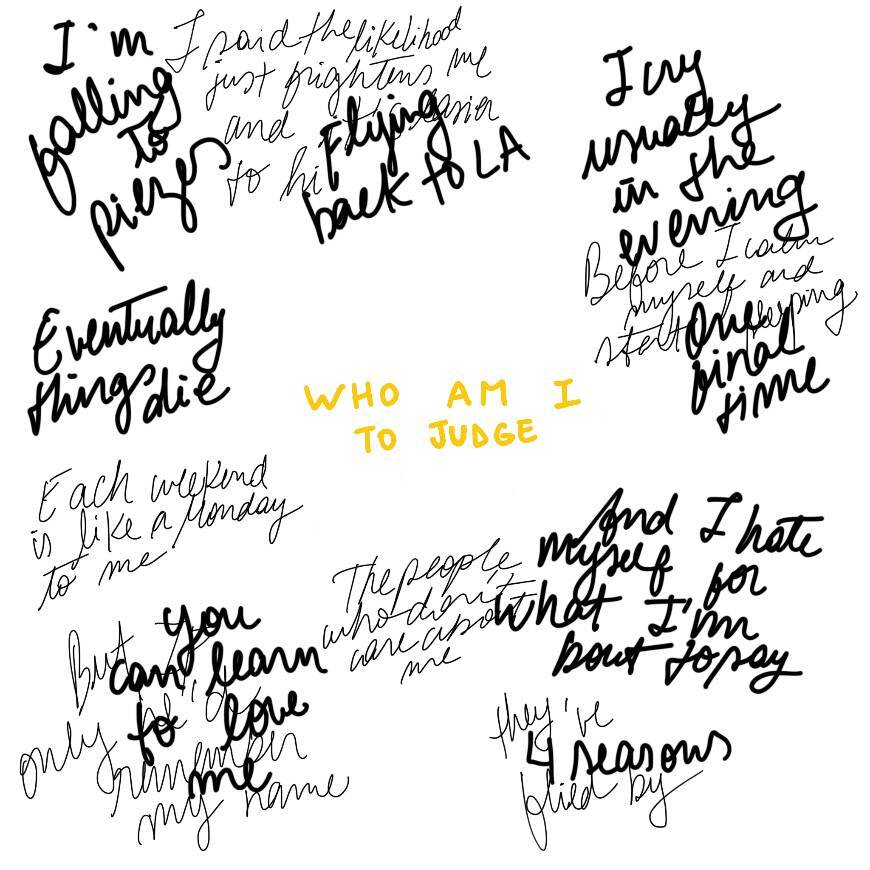 I'm
falling
to
piezes
I said the likelihood
just frightens me
and easier
to hi
Flying
back to LA
I cry
usually
in the
evening
Before I calm
myself and
start
One
final
time
Eventually
things die
WHO AM I
TO JUDGE
Each weekend
is like a Monday
to me
The people
who don't
care about
me
And I hate
myself for
what I'm
bout to say
But
only
remember
my name
you
can learn
to love
me
they've
flied by
4 seasons